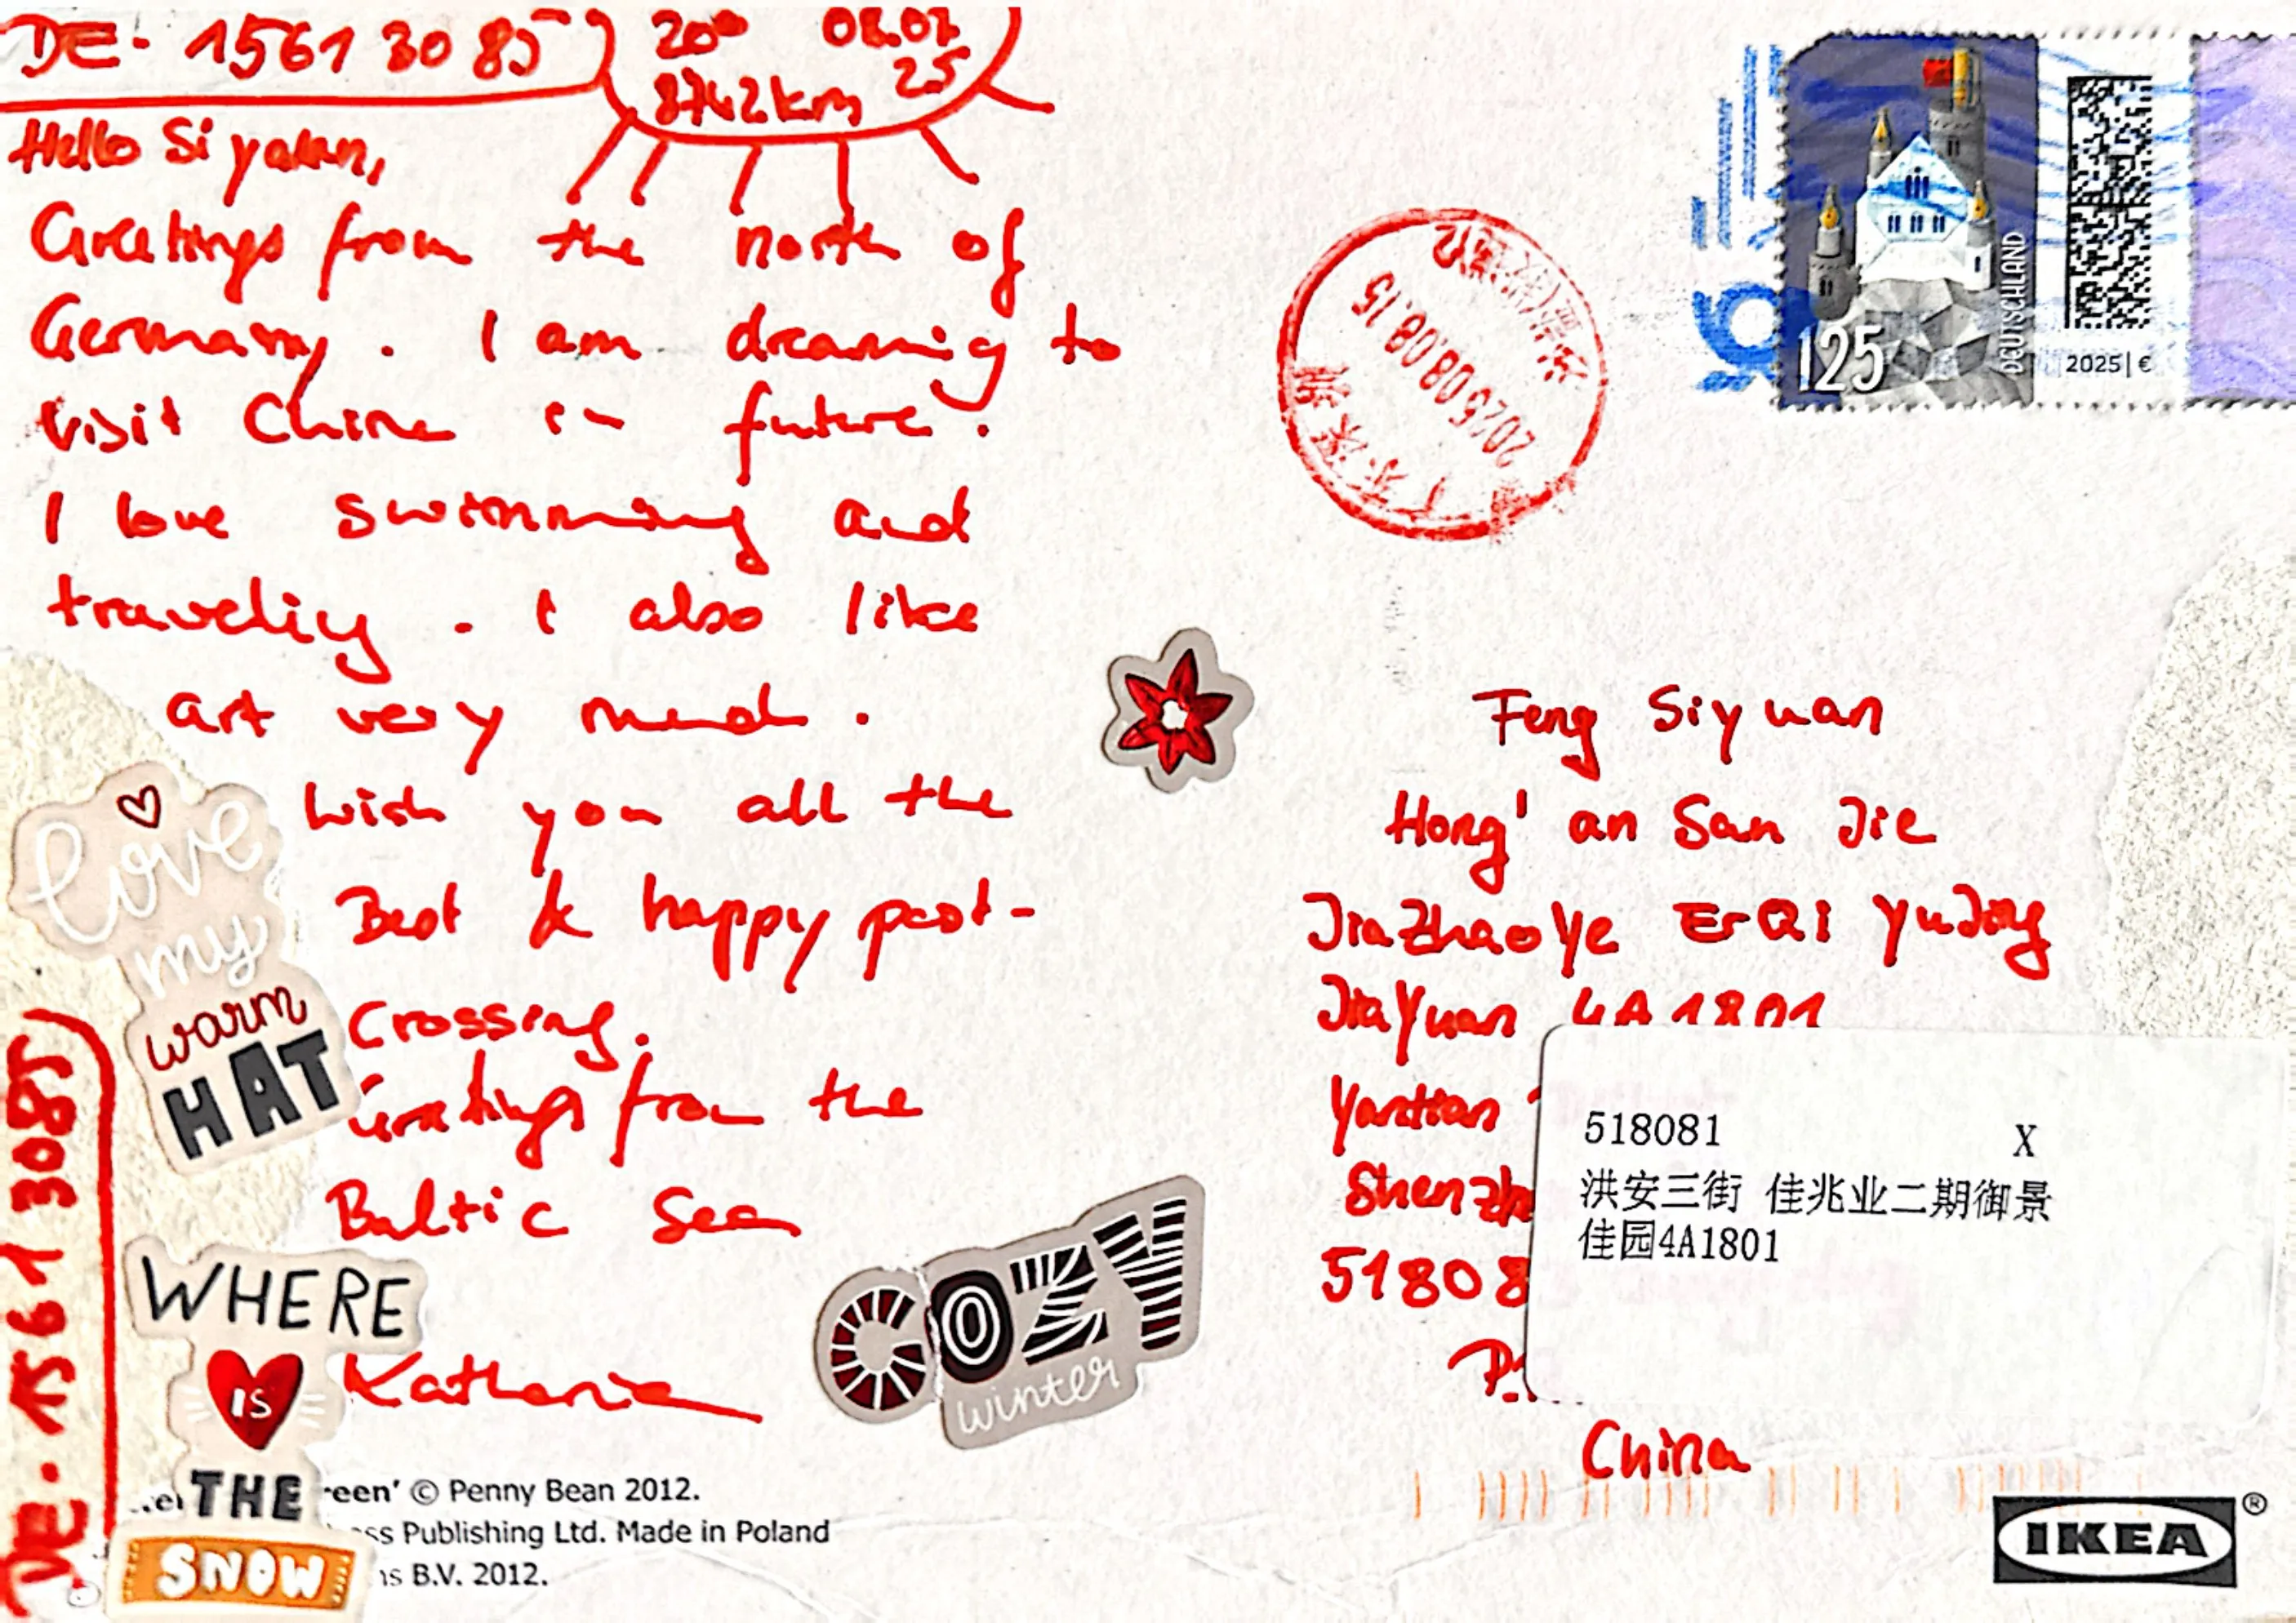 DE-15613085
20° 08.07.
8742km 25
Hello Siyuan,
Greetings from the north of
Germany. I am dreaming to
visit China in future.
I love swimming and
traveling. I also like
art very much.
Wish you all the
Best & happy post-
crossing.
Greetings from the
Baltic Sea
Katharina
DE-15613085
love
my
warm
HAT
WHERE
IS
THE
SNOW
COZY
winter
reen' © Penny Bean 2012.
ss Publishing Ltd. Made in Poland
ns B.V. 2012.
125
DEUTSCHLAND
2025 | €
2025.08.08.15
广东深圳
Feng Siyuan
Hong'an San Jie
JiaZhaoYe ErQi YuJing
JiaYuan 4A1801
Yantian
Shenzh
51808
China
518081 X
洪安三街 佳兆业二期御景
佳园4A1801
IKEA®